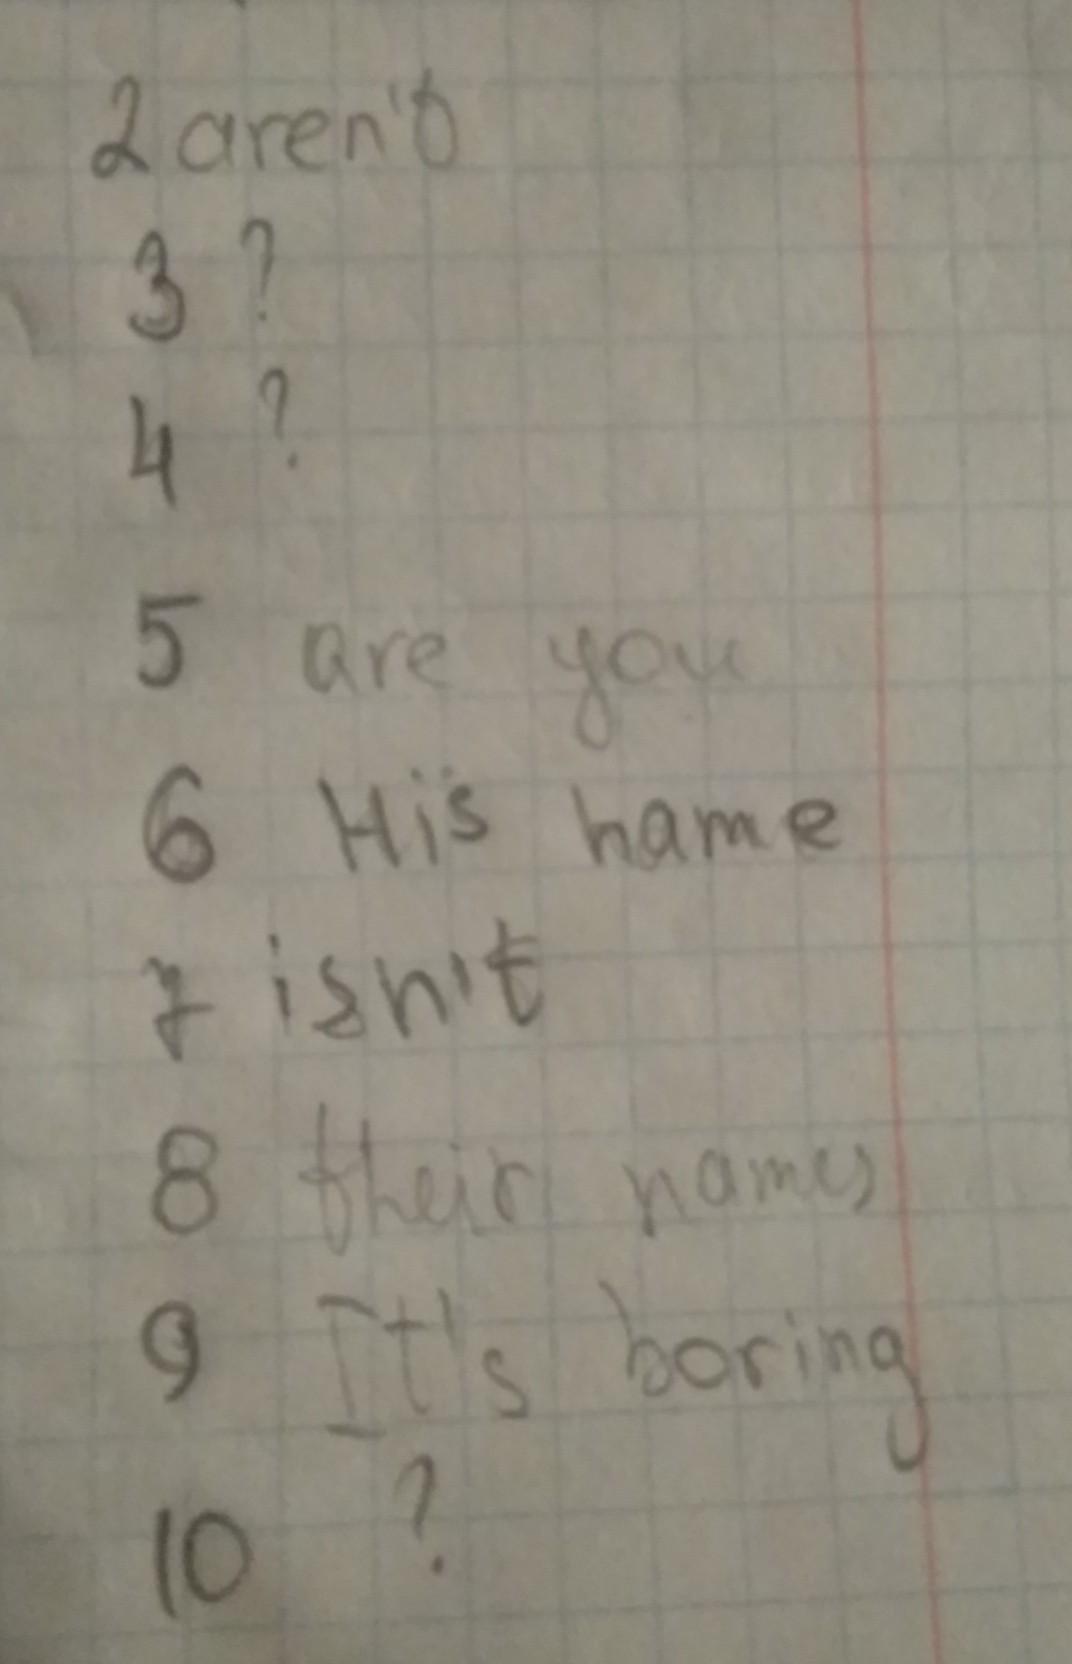 2 aren't
3 ?
4 ?
5 are you
6 His name
7 isn't
8 their names
9 It's boring
10 ?